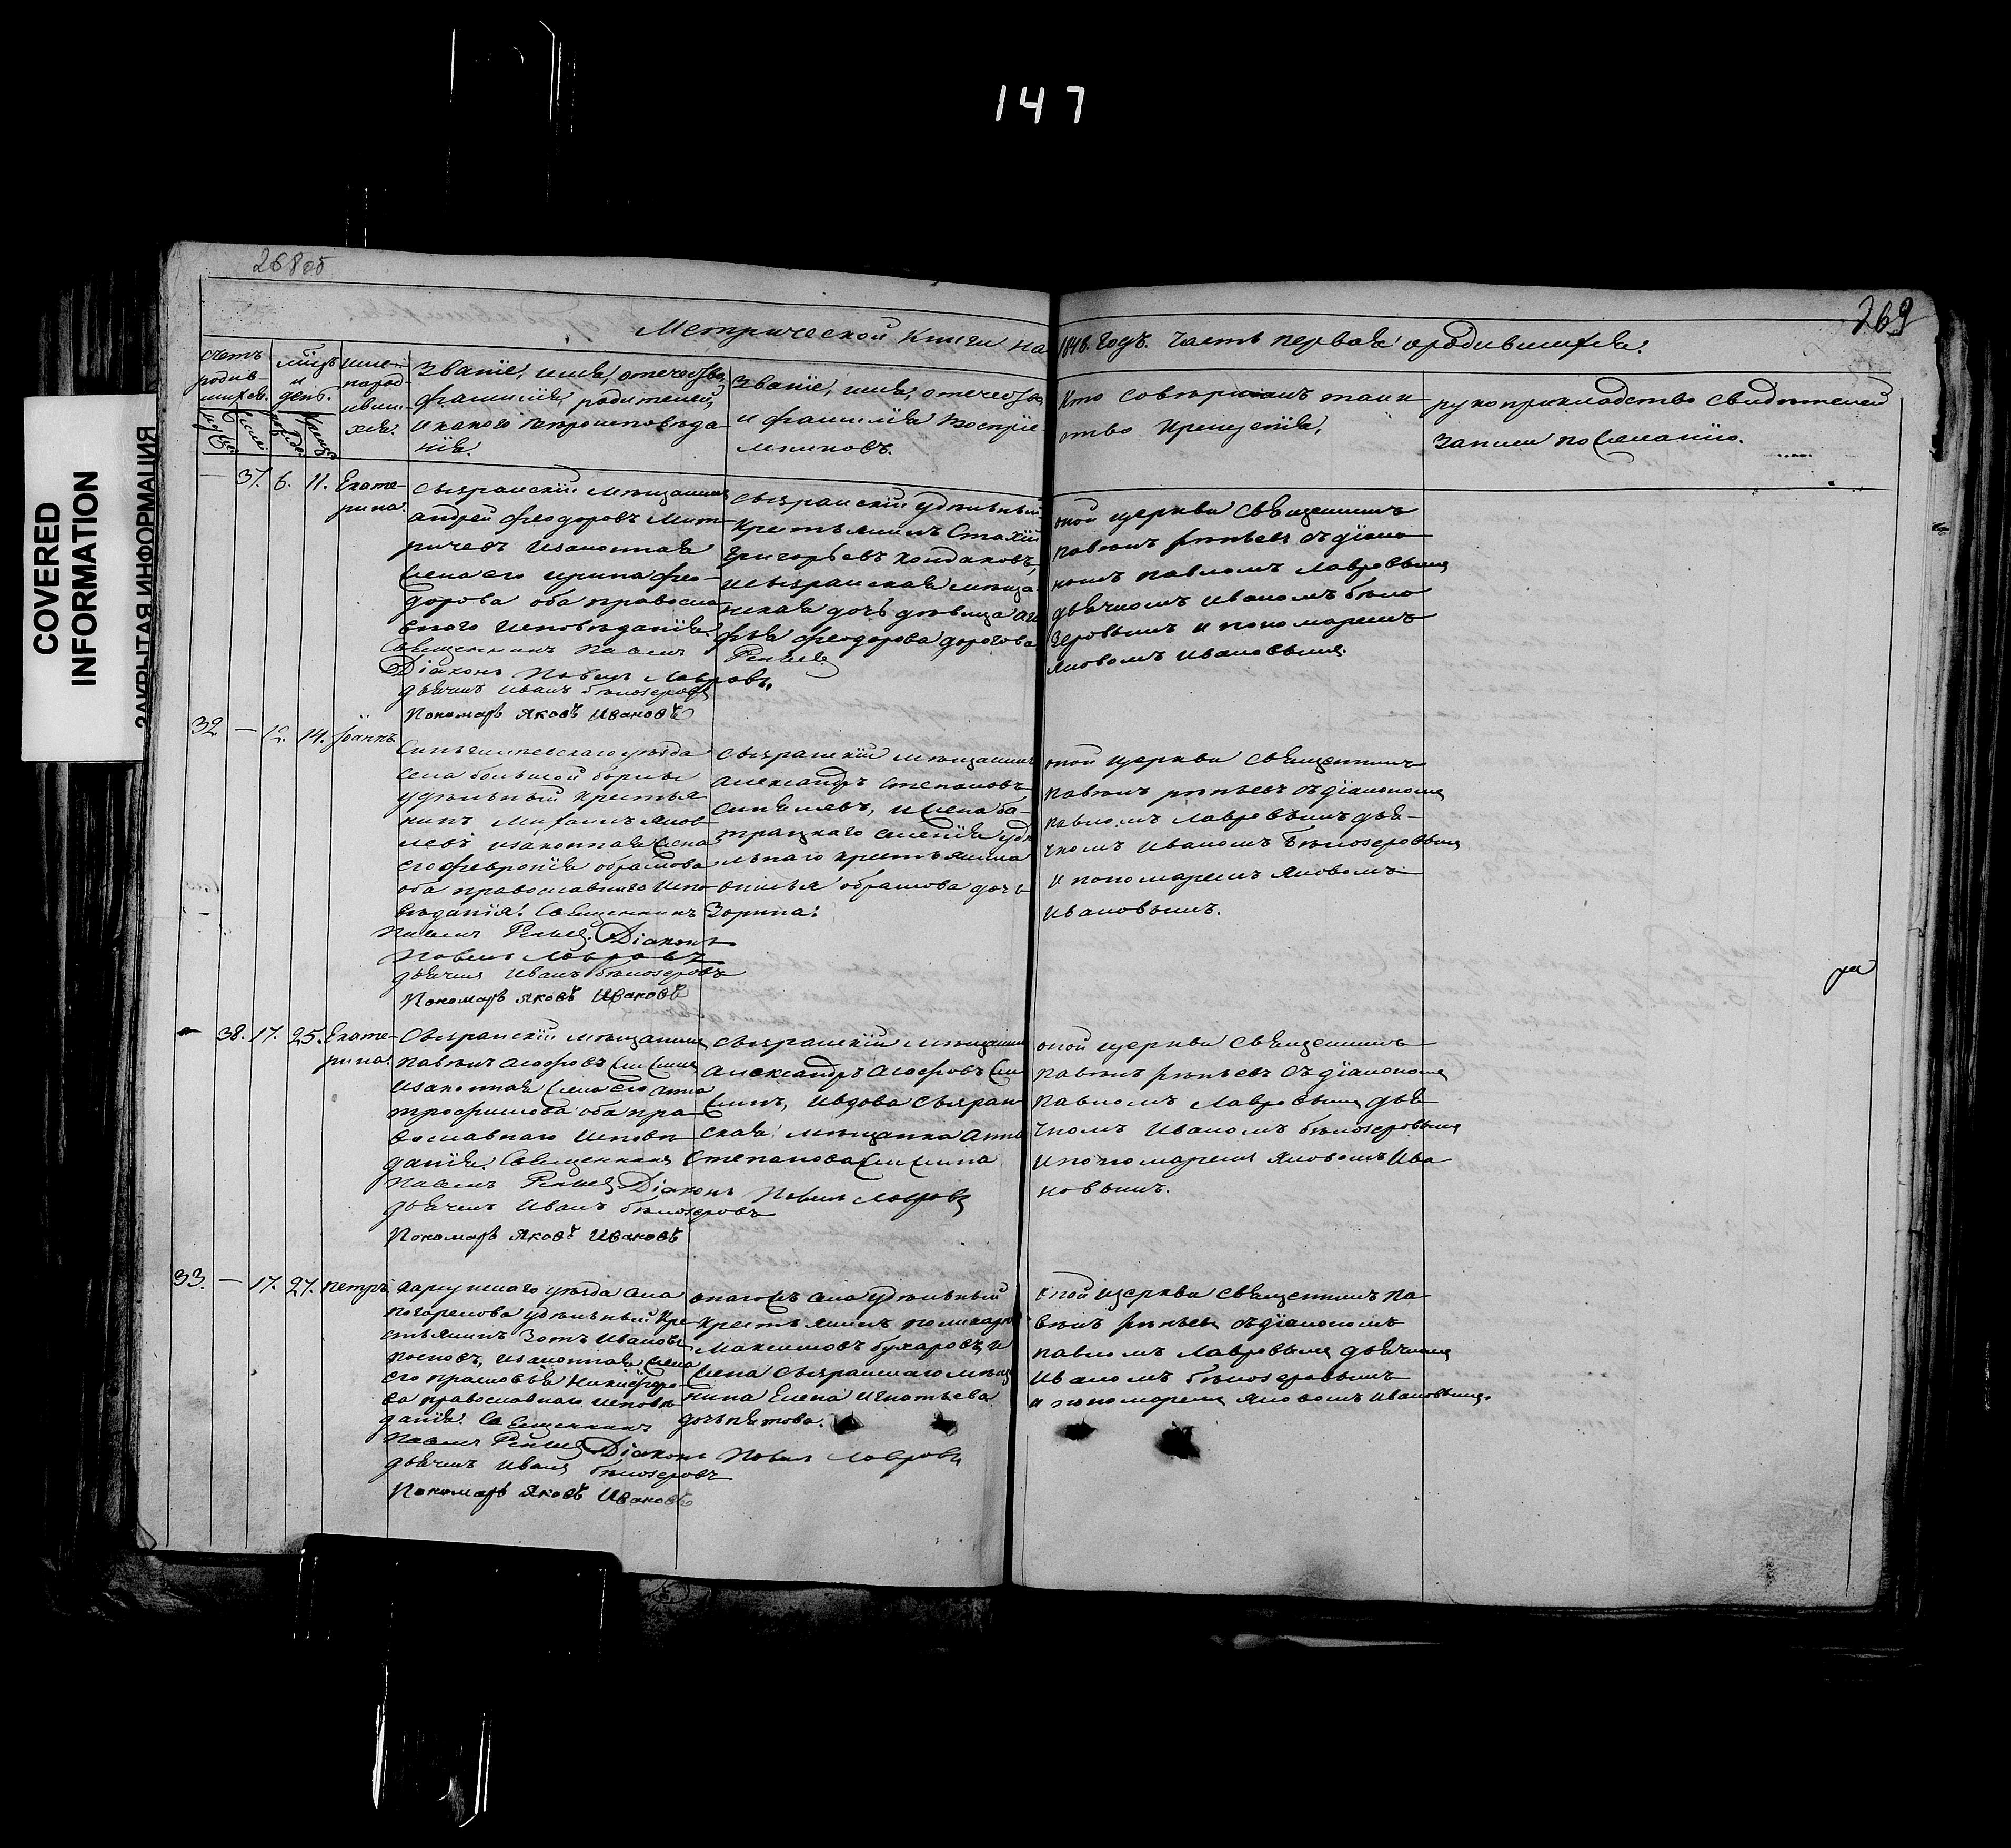 147
COVERED
INFORMATION
ЗАКРЫТАЯ ИНФОРМАЦИЯ
268об
269
Метрической Книги на 1848. Годъ. Часть первая о родившихся.
счетъ
родив-
шихся.
мцъ
и
день.
име-
народ-
ивши-
хся.
Званіе, имя, отечество,
фамилія, родителей,
и какого вѣроисповѣда
нія.
Званіе, имя, отечество
и фамилія Воспріе-
мниковъ.
Кто совершалъ таин
ство Крещенія,
рукоприкладство свидѣтелей
записи по желанію.
37. 6. 11. Екате-
рина.
Сызранскій мѣщанинъ
андрей феодоровъ
изаконная
жена его ирина фео-
дорова оба правосла
внаго исповѣданія.
Священникъ Павелъ
Діаконъ Павелъ Лавровъ.
дьячекъ Иванъ бѣлозеровъ
Пономарь Яковъ Ивановъ
Сызранскій удѣльный
крестьянинъ
григорьевъ кондаковъ,
и сызранская мѣща-
нская дочь дѣвица ага
фья феодорова дорогова
оной церкви Священникъ
павелъ рѣпьевъ съ діако
номъ павломъ лавровымъ
дьячкомъ иваномъ бѣло
зеровымъ и пономаремъ
яковомъ ивановымъ
32 — 12. 14. Іоаннъ.
уѣзда
села большой борлы
удѣльный крестья
нинъ Михаилъ яков
левъ изаконная жена
его февронія абрамова
оба православнаго испо-
вѣданія. Священникъ
Павелъ Діаконъ
Павелъ Лавровъ
дьячекъ Иванъ бѣлозеровъ
Пономарь Яковъ Ивановъ
Сызранскій мѣщанинъ
александръ степановъ
и жена ба-
трацкаго селенія удѣ
льнаго крестьянина
абрамова дочь
Зорина.
оной церкви Священникъ
павелъ рѣпьевъ съ діакономъ
павломъ лавровымъ дья-
чкомъ иваномъ бѣлозеровымъ
и пономаремъ яковомъ
ивановымъ.
— 38. 17. 25. Екате-
рина.
Сызранскій мѣщанинъ
павелъ
изаконная жена его анна
трофимова оба пра-
вославнаго исповѣ-
данія. Священникъ
Павелъ Діаконъ Павелъ Лавровъ
дьячекъ Иванъ бѣлозеровъ
Пономарь Яковъ Ивановъ
Сызранскій мѣщанинъ
александръ
ивдова сызран
ская мѣщанка анна
степанова
оной церкви Священникъ
павелъ рѣпьевъ съ діакономъ
павломъ лавровымъ дья
чкомъ иваномъ бѣлозеровымъ
и пономаремъ яковомъ ива
новымъ.
33. — 17. 27. петръ.
уѣзда села
погорелова удѣльный кре
стьянинъ Зотъ Ивановъ
изаконная жена
его прасковья никифоро-
ва православнаго исповѣ
данія. Священникъ
Павелъ Діаконъ Павелъ Лавровъ
дьячекъ Иванъ бѣлозеровъ
Пономарь Яковъ Ивановъ
онагожъ села удѣльный
крестьянинъ поликарпъ
максимовъ бухаровъ, и
жена сызранскаго мѣща
нина Елена игнатьева
дочь пятова.
оной церкви священникъ па
велъ рѣпьевъ съ діакономъ
павломъ лавровымъ дьячкомъ
иваномъ бѣлозеровымъ
и пономаремъ яковомъ ивановымъ.